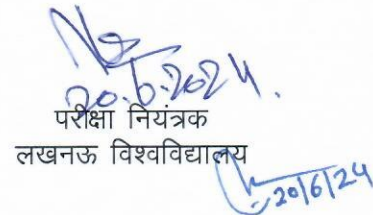 20.6.2024.
परीक्षा नियंत्रक
लखनऊ विश्वविद्यालय
20/6/24